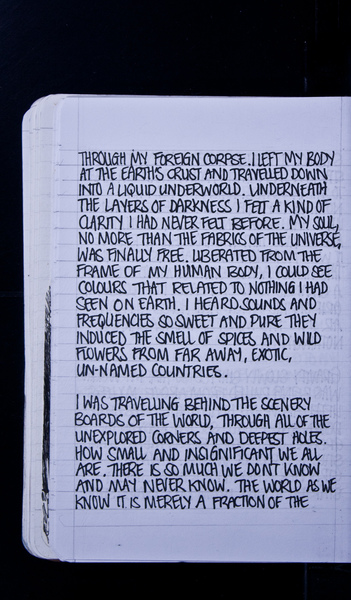 THROUGH MY FOREIGN CORPSE. I LEFT MY BODY
AT THE EARTHS CRUST AND TRAVELLED DOWN
INTO A LIQUID UNDERWORLD. UNDERNEATH
THE LAYERS OF DARKNESS I FELT A KIND OF
CLARITY I HAD NEVER FELT BEFORE. MY SOUL,
NO MORE THAN THE FABRICS OF THE UNIVERSE,
WAS FINALLY FREE. LIBERATED FROM THE
FRAME OF MY HUMAN BODY, I COULD SEE
COLOURS THAT RELATED TO NOTHING I HAD
SEEN ON EARTH. I HEARD SOUNDS AND
FREQUENCIES SO SWEET AND PURE THEY
INDUCED THE SMELL OF SPICES AND WILD
FLOWERS FROM FAR AWAY, EXOTIC,
UN-NAMED COUNTRIES.
I WAS TRAVELLING BEHIND THE SCENERY
BOARDS OF THE WORLD, THROUGH ALL OF THE
UNEXPLORED CORNERS AND DEEPEST HOLES.
HOW SMALL AND INSIGNIFICANT WE ALL
ARE. THERE IS SO MUCH WE DON'T KNOW
AND MAY NEVER KNOW. THE WORLD AS WE
KNOW IT IS MERELY A FRACTION OF THE